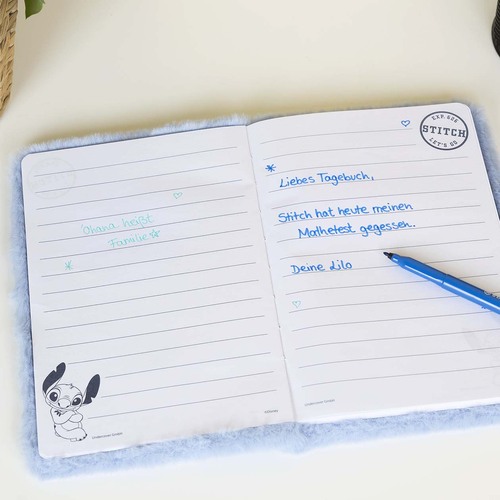 'Ohana heißt
Familie
EXP. 626
STITCH
LET'S GO
Liebes Tagebuch,
Stitch hat heute meinen
Mathetest gegessen.
Deine Lilo